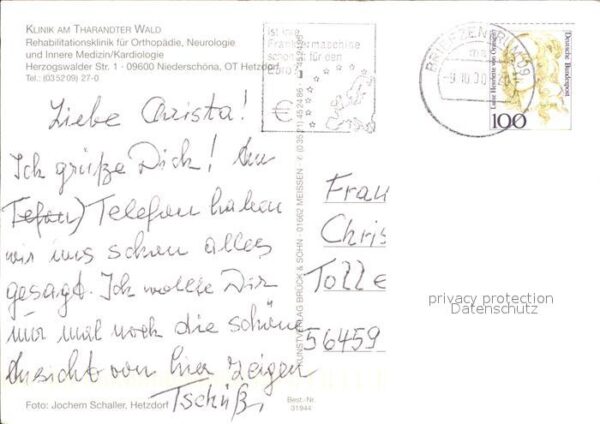 KLINIK AM THARANDTER WALD
Rehabilitationsklinik für Orthopädie, Neurologie
und Innere Medizin/Kardiologie
Herzogswalder Str. 1 · 09600 Niederschöna, OT Hetzdorf
Tel.: (03 52 09) 27-0
Liebe Christa!
Ich grüße Dich! Am
Telefon haben
wir uns schon alles
gesagt. Ich wollte Dir
nur mal noch die schöne
Ansicht von hier zeigen
Tschüß,
Foto: Jochem Schaller, Hetzdorf
Best.-Nr.
31944
KUNSTVERLAG BRÜCK & SOHN · 01662 MEISSEN ·
Ist Ihre
Frankiermaschine
schon fit für den
Euro?
€
BRIEFZENTRUM 09
Deutsche Bundespost
Luise Henriette von Oranien
100
Frau
Chris
Tolle
56459
privacy protection
Datenschutz